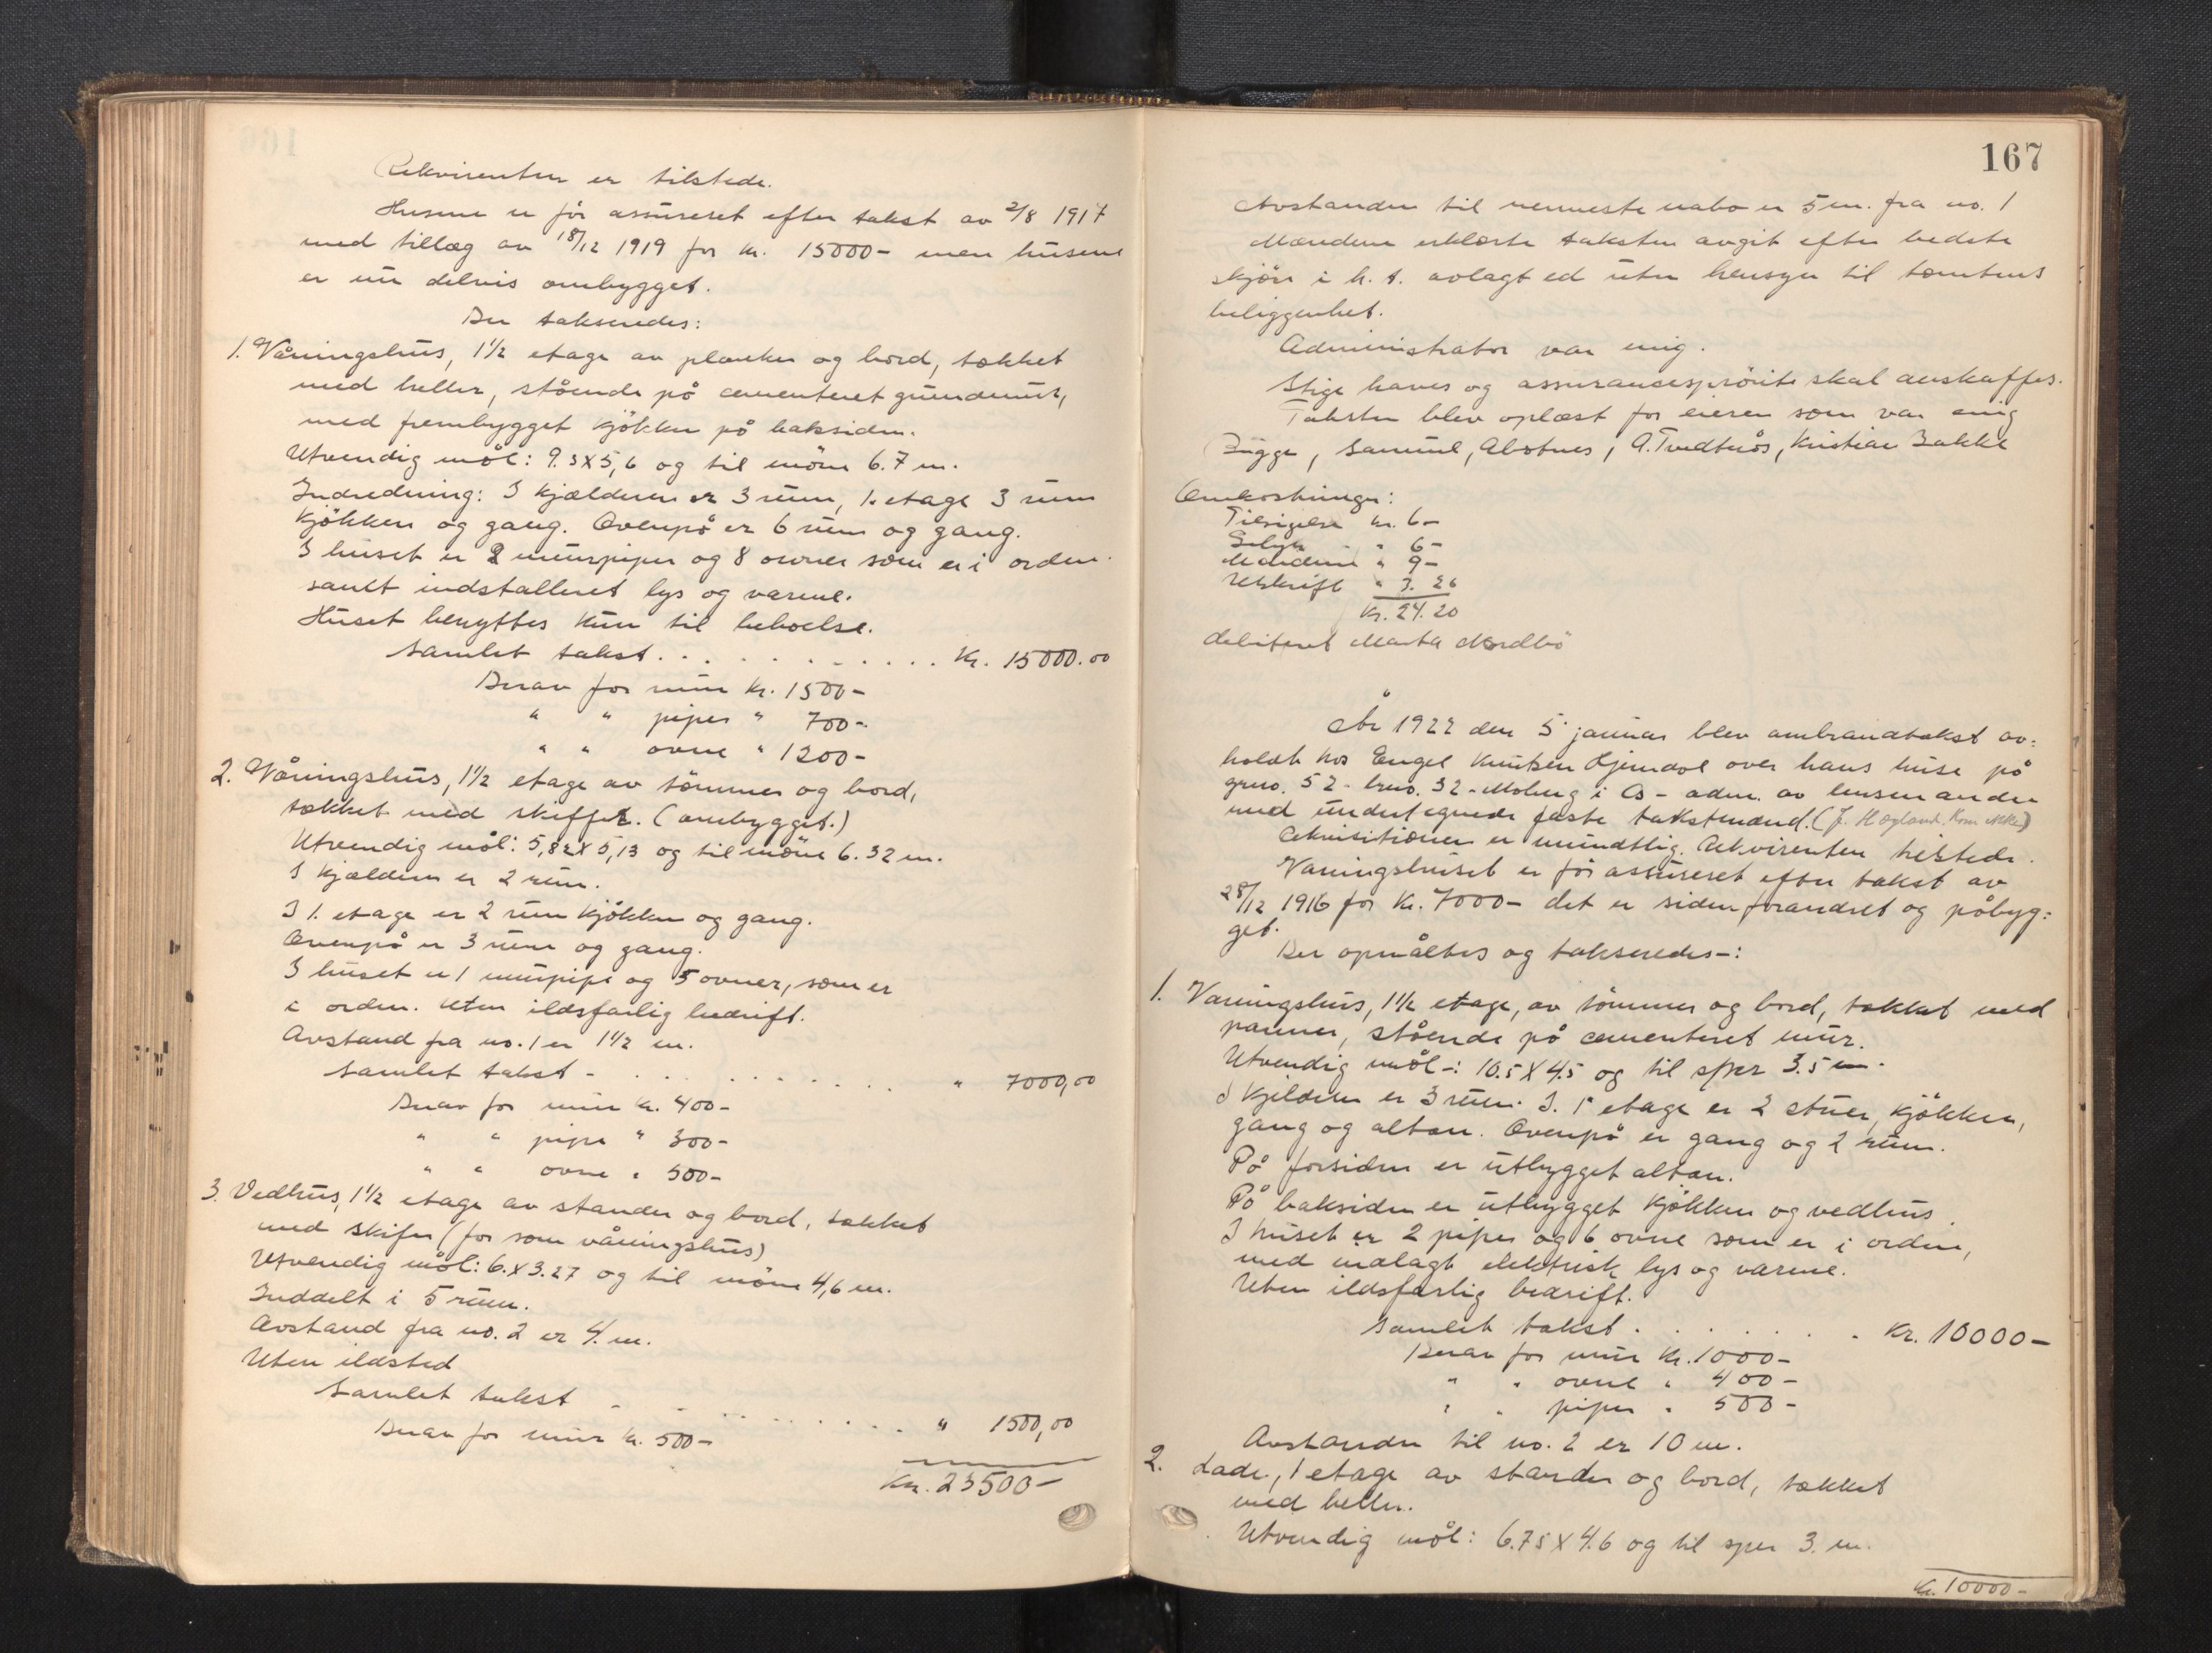 Rekvirenten er tilstede.
Husene er før assureret efter takst av 2/8 1917
med tillæg av 18/12 1919 for kr. 15000- men husene
er nu delvis ombygget.
Der takseredes:
1. Våningshus, 1½ etage av planker og bord, tækket
med heller, stående på cementeret grundmur,
med frembygget kjøkken på baksiden.
Utvendig mål: 9.3 x 5,6 og til møne 6.7 m.
Indredning: I kjælderen er 3 rum, 1. etage 3 rum
kjøkken og gang. Ovenpå er 6 rum og gang.
I huset er 2 murpiper og 8 ovner som er i orden
samt indstalleret lys og varme.
Huset benyttes kun til beboelse.
Samlet takst . . . . . . . . . . . Kr. 15000.00
Derav for mur kr. 1500-
" " piper " 700-
" " ovne " 1200-
2. Våningshus, 1½ etage av tømmer og bord,
tækket med skiffer. (ombygget.)
Utvendig mål: 5,82 x 5,13 og til møne 6.32 m.
I kjælderen er 2 rum.
I 1. etage er 2 rum kjøkken og gang.
Ovenpå er 3 rum og gang.
I huset er 1 murpipe og 5 ovner, som er
i orden. Uten ildsfarlig bedrift.
Avstand fra no. 1 er 1½ m.
Samlet takst - . . . . . . . . . " 7000,00
Derav for mur kr. 400-
" " pipe " 300-
" " ovne " 500-
3. Vedhus, 1½ etage av stander og bord, tækket
med skifer (før som våningshus)
Utvendig mål: 6. x 3.27 og til møne 4,6 m.
Inddelt i 5 rum.
Avstand fra no. 2 er 4. m.
Uten ildsted
Samlet takst - - . . . . . . . . " 1500,00
Derav for mur kr. 500-
Kr. 23500-
167
Avstanden til nærmeste nabo er 5 m. fra no. 1
Mændene erklærte taksten avgit efter bedste
skjøn i h. t. avlagt ed uten hensyn til tomtens
beliggenhet.
Administrator var enig.
Stige haves og assurancesprøite skal anskaffes.
Taksten blev oplæst for eieren som var enig
Bugge, Samuel, Abotnes, A. Tvedtnås, Kristian Bakke
Omkostninger:
Tilsigelse kr. 6-
" 6-
Mændene " 9-
Utskrift " 3.26
Kr. 24.20
debiteret Marta Nordbø
År 1922 den 5 januar blev ombrandtakst av-
holdt hos Engel Knutsen Hjemdal over hans huse på
gnro. 52 - brno. 32 - Moberg i Os - adm. av lensmanden
med undertegnede faste takstmænd. (J. Hægland, kom ikke)
Rekvisitionen er mundtlig. Rekvirenten tilstede.
Våningshuset er før assureret efter takst av
28/12 1916 for kr. 7000- det er siden forandret og påbyg-
get.
Der opmåltes og takseredes-:
1. Våningshus, 1½ etage, av tømmer og bord, tækket med
panner, stående på cementeret mur.
Utvendig mål-: 10.5 x 4.5 og til sper 3.5 m.
I kjelderen er 3 rum. I. 1' etage er 2 stuer, kjøkken,
gang og altan. Ovenpå er gang og 2 rum.
På forsiden er utbygget altan.
På baksiden er utbygget kjøkken og vedhus.
I huset er 2 piper og 6 ovne som er i orden,
med inalagt elektrisk lys og varme.
Uten ildsfarlig bedrift.
Samlet takst . . . . . . . Kr. 10000-
Derav for mur Kr. 1000-
" " ovne " 400-
" " piper " 500-
Avstanden til no. 2 er 10 m.
2. Lade, 1 etage av stander og bord, tækket
med heller.
Utvendig mål: 6.75 x 4.6 og til sper 3. m.
Kr. 10000-